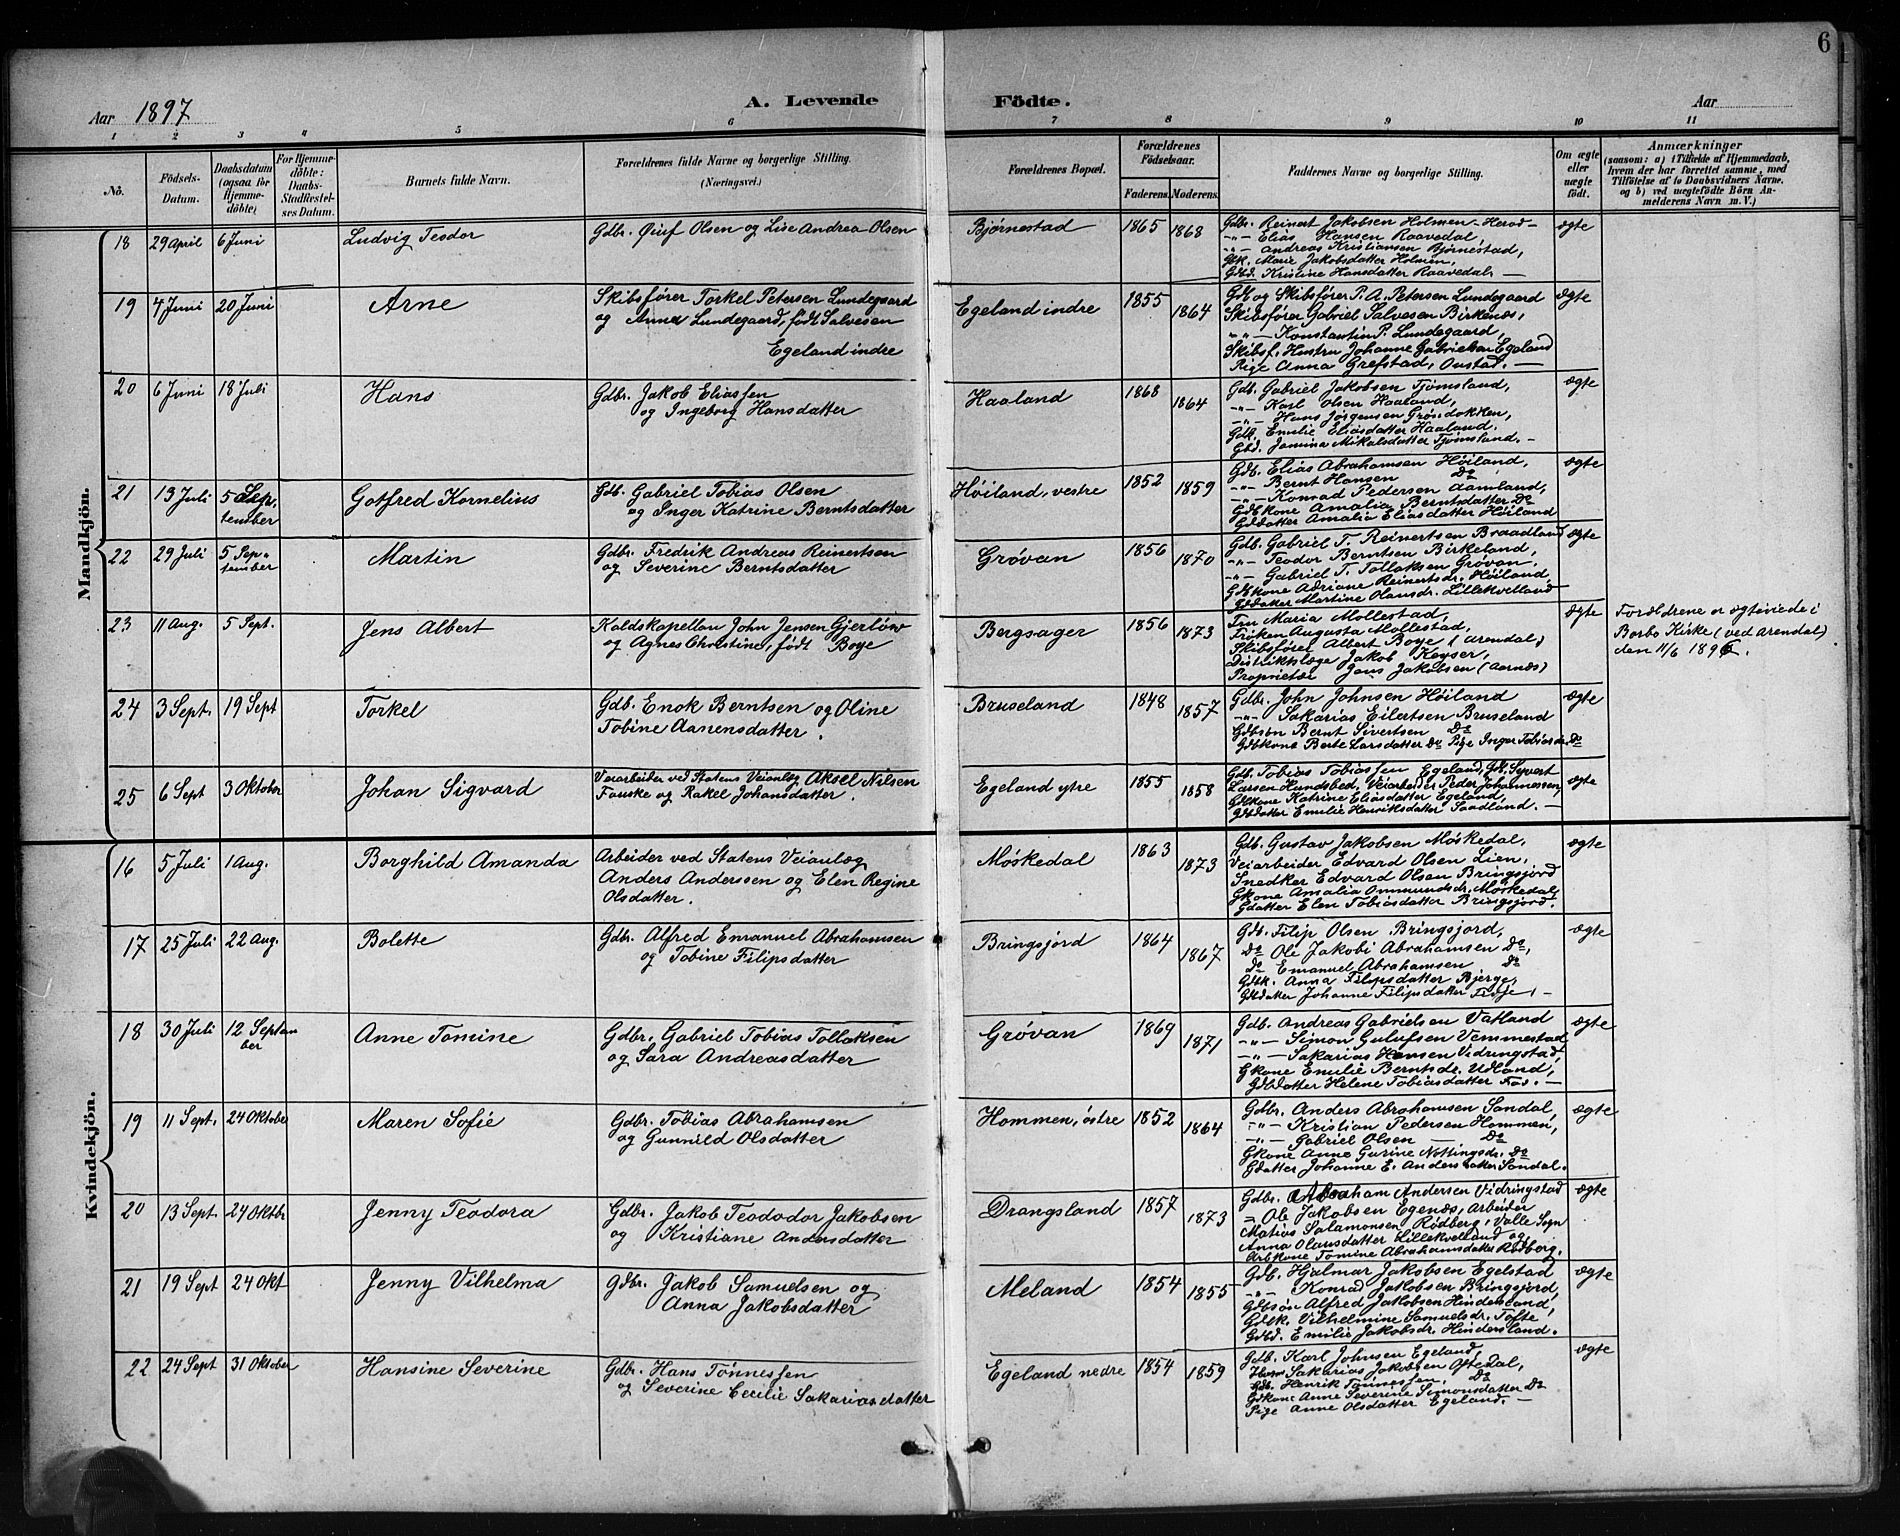 6
Aar 1897
A. Levende Födte.
Aar
1 2 3 4 5 6 7 8 9 10 11
No.
Födsels-Datum.
Daabsdatum (ogsaa for Hjemmedöbte)
For Hjemmedöbte: Daabs-Stadfestelses Datum.
Barnets fulde Navn.
Forældrenes fulde Navne og borgerlige Stilling. (Næringsvei.)
Forældrenes Bopæl.
Forældrenes Födselsaar.
Faderens. Moderens.
Faddernes Navne og borgerlige Stilling.
Om ægte eller uægte født.
Anmærkninger
(saasom: a) i Tilfælde af Hjemmedaab,
hvem der har forrettet samme, med
Tilföielse af to Daabsvidners Navne,
og b) ved uegtefödte Börn An-
melderens Navn m. V.)
Mandkjön.
18 29 April 6 Juni Ludvig Teodor
Gdbr. Olsen og Lise Andrea Olsen
Bjørnestad 1865 1868
Gdbr. Reinert Jakobsen Holmen - Herad -
-"- Elias Hansen Raavedal,
-"- Andreas Kristiansen Bjørnestad,
Gbk. Marie Jakobsdatter Holmen,
Gdbd. Kristine Hansdatter Raavedal. -
ægte
19 4 Juni 20 Juni Arne
Skibsfører Torkel Petersen Lundegaard
og Anna Lundegaard, født Salvesen
Egeland indre
Egeland indre 1855 1864
Gdb og Skibsfører P. A. Petersen Lundegaard
Skibsfører Gabriel Salvesen Birkenæs,
-"- Konstantin P. Lundegaard,
Skibsf. Hustru Johanne Gabrielsen Egeland
Pige Anna Grefstad, Onstad. -
ægte
20 6 Juni 18 Juli Hans
Gdbr. Jakob Eliassen
og Ingeborg Hansdatter
Haaland 1868 1864
Gdb. Gabriel Jakobsen Tjømsland,
-"- Karl Olsen Haaland,
-"- Hans Jörgensen Grøsdokken,
Gdb. Emilie Eliasdatter Haaland.
Gbd. Jamina Mikalsdatter Tjømsland. -
ægte
21 13 Juli 5 September Gotfred Kornelius
Gdb. Gabriel Tobias Olsen
og Inger Katrine Berntsdatter
Høiland, vestre 1852 1859
Gdb. Elias Abrahamsen Høiland,
-"- Bernt Hansen Do
-"- Konrad Pedersen Aamland,
Gdbkone Amalia Berntsdatter Do
Gddatter Amalia Eliasdatter Höiland
ægte
22 29 Juli 5 September Martin
Gdbr. Fredrik Andreas Reinertsen
og Severine Berntsdatter
Grøvan 1856 1870
Gdb. Gabriel T. Reinertsen Braadland
-"- Teodor Berntsen Birkeland,
-"- Gabriel T. Tollaksen Grøvan.
Gdbkone Adriane Reinertsdr. Höiland,
Gddatter Martine Olausdr. Lillekvelland
ægte
23 11 Aug. 5 Sept. Jens Albert
Kaldskapellan John Jensen Gjerløw
og Agnes Christine, født Boye
Bergsager 1856 1873
Fru Maria Mollestad,
Frøken Augusta Mollestad,
Skibsfører Albert Boye (Arendal)
Distriktslæge Jakob Keyser,
Proprietær Jens Jakobsen (Aarnæs)
Ægte
Forældrene er ægteviede i
Barbo Kirke (ved Arendal)
den 11/6 1896.
24 3 Sept. 19 Sept Torkel
Gdb. Enok Berntsen og Oline
Tobine Aanensdatter.
Bruseland 1848 1857
Gdbr. John Johnsen Høiland
-"- Sakarias Eilertsen Bruseland
Gdbsøn Bernt Sivertsen Do
Gdbkone Berte Larsdatter Do Pige Inger Tobiasdr. Do
ægte
25 6 Sept 3 Oktober Johan Sigvard
Veiarbeider ved Statens Veianlæg Aksel Nilsen
Fauske og Rakel Johansdatter.
Egeland ytre 1855 1858
Gdb. Tobias Tobiassen Egeland, Gdb. Syvert
Larsen Hundsbed, Veiarbeider Peder Johannessen,
Gdbkone Katrine Eliasdatter Egeland,
Gdbdatter Emilie Henriksdatter Saadland. -
ægte
Kvindekjön.
16 5 Juli 1 Aug. Borghild Amanda
Arbeider ved Statens Veianlæg
Anders Anderssen og Elen Regine
Olsdatter.
Møskedal 1863 1873
Gdb. Gustav Jakobsen Møskedal,
Veiarbeider Edvard Olsen Lien,
Snedker Edvard Olsen Bringsjord
Gkone Amalia Ommundsdr. Møskedal,
Gdatter Elen Tobiasdatter Bringsjord.
ægte
17 25 Juli 22 Aug. Bolette
Gdbr. Alfred Emanuel Abrahamsen
og Tobine Filipsdatter
Bringsjord 1864 1867
Gdb. Filip Olsen Bringsjord,
Do Ole Jakobi Abrahamsen Do,
Do Emanuel Abrahamsen Do
Gdbk. Anna Filipsdatter Bjerge,
Gdbdatter Johanne Filipsdatter Fidje, -
ægte
18 30 Juli 12 September Anne Tomine
Gdbr. Gabriel Tobias Tollaksen
og Sara Andreasdatter
Grøvan 1869 1871
Gdb. Andreas Gabrielsen Vatland
-"- Simon Gulufsen Vemmestad
-"- Sakarias Hansen Vidringstad,
Gkone Emilie Berntsdr. Udland,
Gdbdatter Helene Tobiasdatter Fos. -
ægte
19 11 Sept. 24 Oktober Maren Sofie
Gdbr. Tobias Abrahamsen
og Gunnild Olsdatter
Hommen, östre 1852 1864
Gdbr. Anders Abrahamsen Sandal,
-"- Kristian Pedersen Hommen,
-"- Gabriel Olsen - Do
Gkone Anne Gurine Nottingsdr. Do
Gdatter Johanne E. Andersdatter Sandal.
ægte
20 13 Sept. 24 Oktbr Jenny Teodora
Gdbr. Jakob Teododor Jakobsen
og Kristiane Andersdatter
Drangsland 1857 1873
Gdbr. Abraham Andersen Vidringstad
" Ole Jakobsen Egenæs, Arbeider
Matias Salamonsen Rødberg, Valle Sogn
Anna Olausdatter Lillekvelland og
Arbkone Tomine Abrahamsdatter Rødberg.
ægte
21 19 Sept 24 Okt Jenny Vilhelma
Gdbr. Jakob Samuelsen og
Anna Jakobsdatter
Meland 1854 1855
Gdb. Hjalmar Jakobsen Egelstad
-"- Konrad Jakobsen Bringsjord,
Gdbsøn Alfred Jakobsen Hindersland,
Gdbk. Vilhelmine Samuelsdr. Tofte
Gdbd. Emilie Jakobsdr. Hindersland.
ægte
22 24 Sept 31 Oktober Hansine Severine
Gdbr. Hans Tønnessen
og Severine Cecilie Sakariasdatter
Egeland nedre 1854 1859
Gdb. Karl Johnsen Egeland,
Sakarias Jakobsen Oftedal,
Gdb. Henrik Tønnessen, Do
Gdkone Anne Severine Simonsdatter Do
Pige Anne Olsdatter Egeland. -
ægte